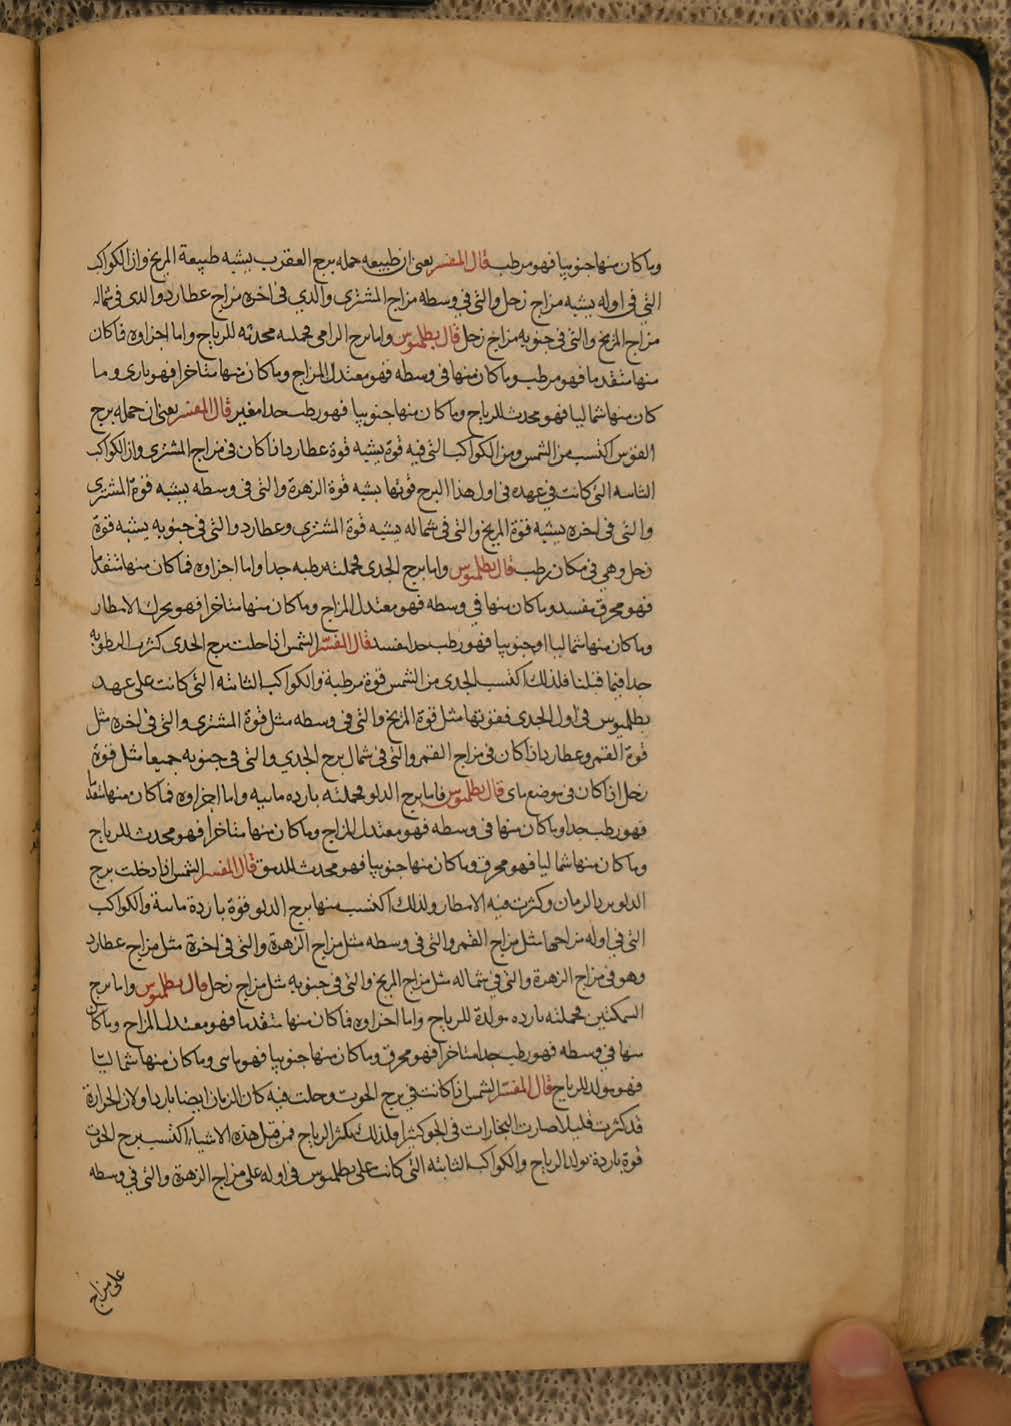 وما كان منها جنوبيا فهو مرطب قال المفسر يعنى ان طبيعه جمله برج العقرب يشبه طبيعة المريخ وان الكواكب
التي فى اوله يشبه مزاج زحل والتى في وسطه مزاج المشترى والذي فى اخره مزاج عطارد والذى فى شماله
مزاج المريخ والتى فى جنوبه مزاج زحل قال بطلميوس واما برج الرامى فجملته محدثه للرياح واما اجزاوه فما كان
منها متقدما فهو مرطب وما كان منها فى وسطه فهو معتدل المزاج وما كان منها متاخرا فهو نارى وما
كان منها شماليا فهو محدث للرياح وما كان منها جنوبيا فهو رطب جدا مغير قال المفسر يعنى ان جمله برج
القوس اكتسب من الشمس ومن الكواكب التى فيه قوة يشبه قوة عطارد اذا كان فى مزاج المشترى وان الكواكب
الثابته التى كانت في عهده فى اول هذا البرج قوتها يشبه قوة الزهرة والتى فى وسطه يشبه قوة المشترى
والتى فى اخره يشبه قوة المريخ والتى فى شماله يشبه قوة المشترى وعطارد والتى فى جنوبه يشبه قوة
زحل وهى فى مكان رطب قال بطلميوس واما برج الجدى فجملته رطبه جدا واما اجزاوه فما كان منها متقدما
فهو محرق مفسد وما كان منها في وسطه فهو معتدل المزاج وما كان منها متاخرا فهو يحرك الامطار
وما كان منها شماليا او جنوبيا فهو رطب جدا مفسد قال المفسر الشمس اذا حلت برج الجدى كثرت الرطوبه
جدا فيما قبلنا فلذلك اكتسب الجدى من الشمس قوة مرطبة والكواكب الثابته التى كانت على عهد
بطلميوس فى اول الجدى فقوتها مثل قوة المريخ والتى فى وسطه مثل قوة المشترى والتى فى اخره مثل
قوة القمر وعطارد اذا كان فى مزاج القمر والتى فى شمال برج الجدي والتى فى جنوبه جميعا مثل قوة
زحل اذا كان فى موضع ماى قال بطلميوس فاما برج الدلو فجملته بارده ماييه واما اجزاوه فما كان منها متقدما
فهو رطب جدا وما كان منها فى وسطه فهو معتدل المزاج وما كان منها متاخرا فهو محدث للرياح
وما كان منها شماليا فهو محرق وما كان منها جنوبيا فهو محدث للدمق قال المفسر الشمس اذا دخلت برج
الدلو برد الزمان وكثرت فيه الامطار ولذلك اكتسب منها برج الدلو قوة باردة ماييه والكواكب
التى فى اوله مزاجها مثل مزاج القمر والتى فى وسطه مثل مزاج الزهرة والتى فى اخرة مثل مزاج عطارد
وهو فى مزاج الزهرة والتى في شماله مثل مزاج المريخ والتى فى جنوبه مثل مزاج زحل قال بطلميوس واما برج
السمكتين فجملته بارده مولدة للرياح واما اجزاوه فما كان منها متقدما فهو معتدل المزاج وما كان
منها فى وسطه فهو رطب جدا متاخرا فهو محرق وما كان منها جنوبيا فهو ماىى وما كان منها شماليا
فهو مولد للرياح قال المفسر الشمس اذا كانت في برج الحوت وحلت فيه كان الزمان ايضا باردا ولان الحرارة
قد كثرت قليلا صارت البخارات فى الجو كثيرا فلذلك تكثر الرياح فمن قبل هذه الاشياء اكتسب برج الحوت
قوة باردة تولد الرياح والكواكب الثابته التى كانت على بطلميوس فى اوله على مزاج الزهرة والتى في وسطه
على مزاج